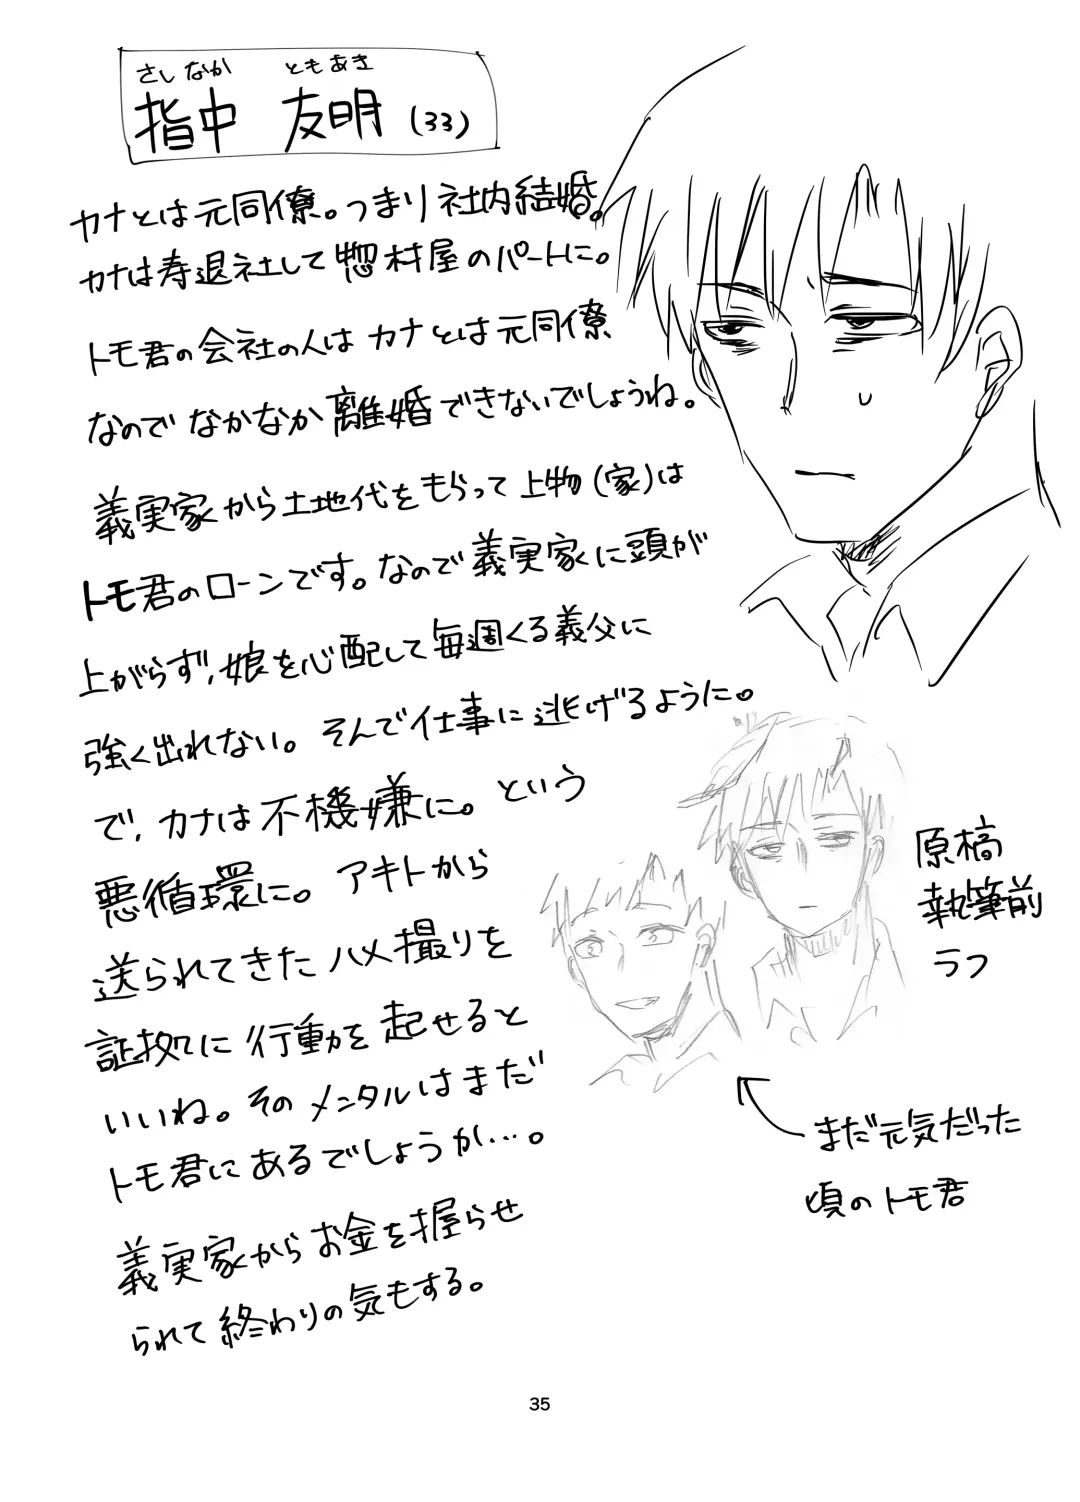 さしなか ともあき
指中 友明(33)
カナとは元同僚。つまり社内結婚。
カナは寿退社して惣材屋のパートに。
トモ君の会社の人はカナとは元同僚
なのでなかなか離婚できないでしょうね。
義実家から土地代をもらって上物(家)は
トモ君のローンです。なので義実家に頭が
上がらず、娘を心配して毎週くる義父に
強く出れない。そんで仕事に逃げるように。
で、カナは不機嫌に。という
悪循環に。アキトから
送られてきたハメ撮りを
証拠に行動を起せると
いいね。そのメンタルはまだ
トモ君にあるでしょうか…。
義実家からお金を握らせ
られて終わりの気もする。
原稿
執筆前
ラフ
まだ元気だった
頃のトモ君
35